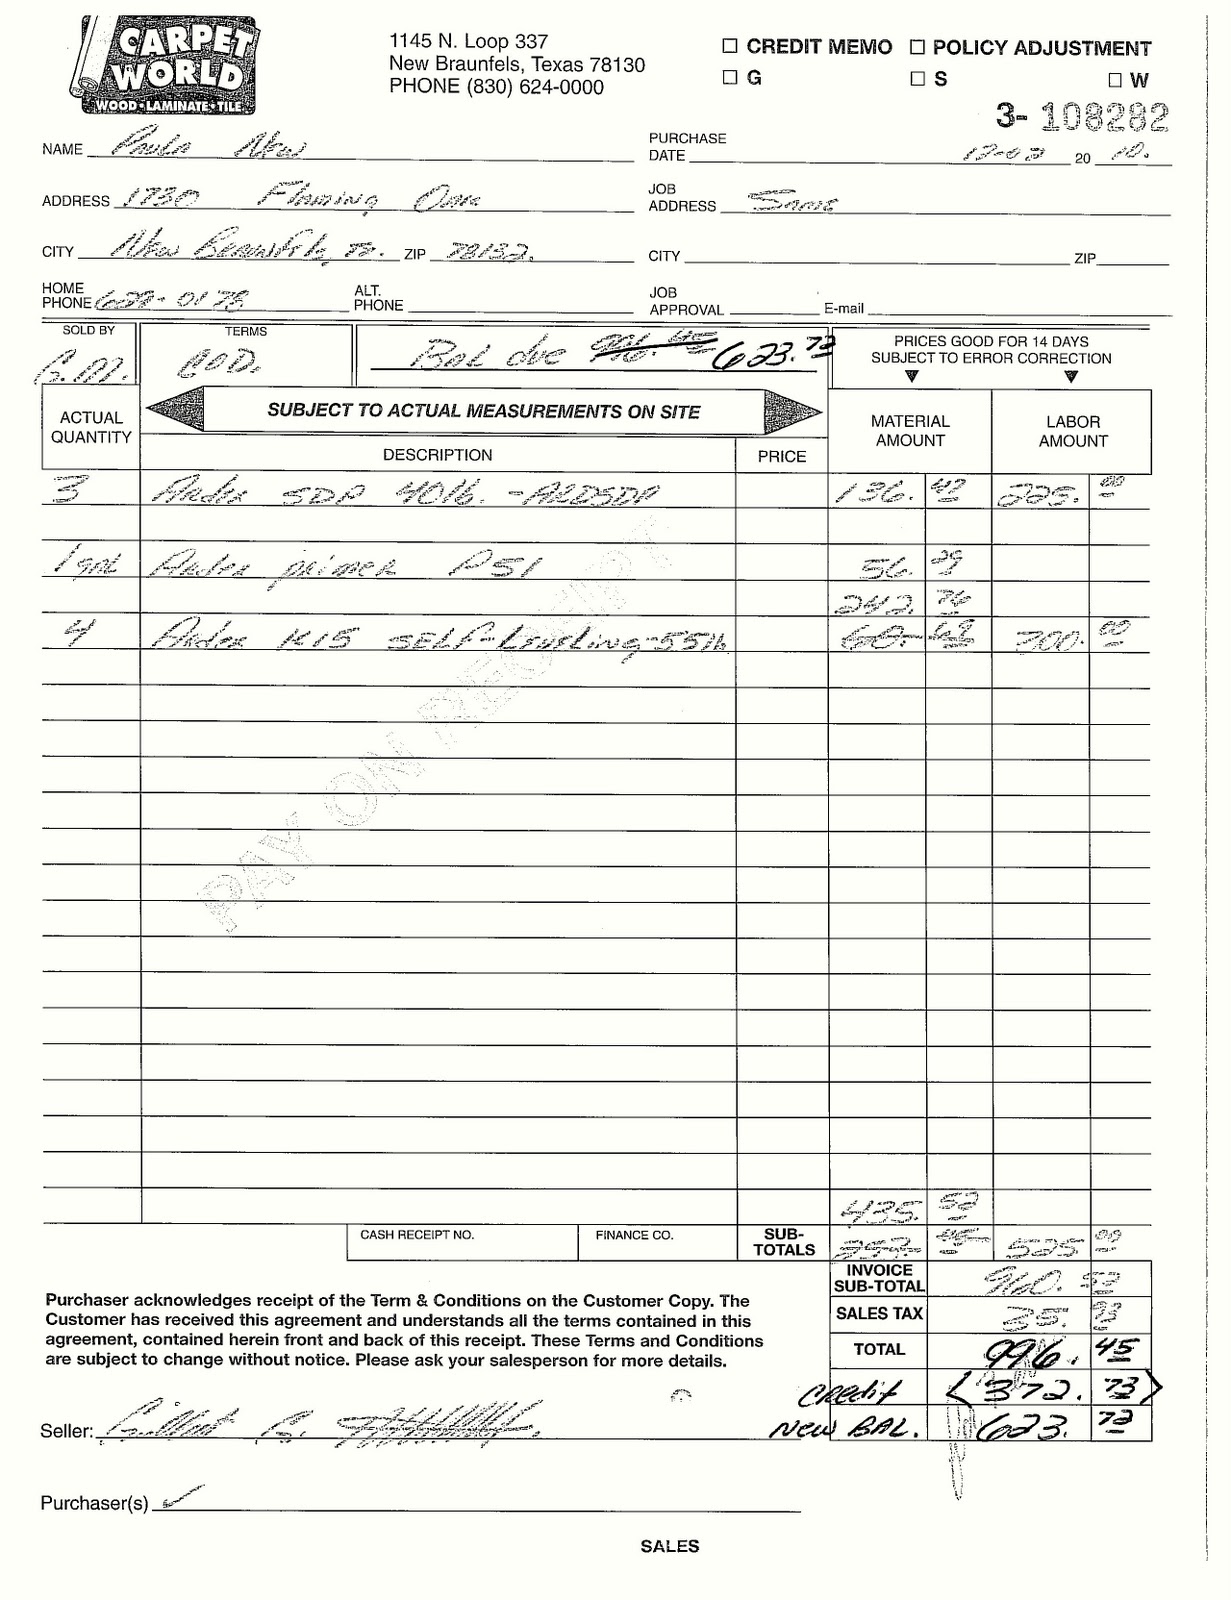 CARPET
WORLD
WOOD • LAMINATE • TILE
1145 N. Loop 337
New Braunfels, Texas 78130
PHONE (830) 624-0000
☐ CREDIT MEMO ☐ POLICY ADJUSTMENT
☐ G ☐ S ☐ W
3- 108282
NAME Paula New
PURCHASE DATE 12-02 20 10.
ADDRESS 1730 Flaming Oak
JOB ADDRESS Same
CITY New Braunfels, Tx. ZIP 78132.
CITY ZIP
HOME PHONE 629-0178
ALT. PHONE
JOB APPROVAL E-mail
SOLD BY TERMS
G.M. COD. Bal due 996.45 623.72
PRICES GOOD FOR 14 DAYS
SUBJECT TO ERROR CORRECTION
ACTUAL QUANTITY
SUBJECT TO ACTUAL MEASUREMENTS ON SITE
MATERIAL AMOUNT
LABOR AMOUNT
DESCRIPTION PRICE
3 Ardex SDP 40lb. -ARDSDP 136. 47 225. 00
1 gal Ardex primer P51 56. 29
242. 76
4 Ardex K15 SELF-Leveling-55lb 60. 69 300. 00
PAY ON RECEIPT
435. 52
CASH RECEIPT NO. FINANCE CO. SUB-TOTALS 253. 45 525 00
INVOICE SUB-TOTAL 960. 52
SALES TAX 35. 93
TOTAL 996. 45
Credit <372. 73>
New BAL. 623. 72
Purchaser acknowledges receipt of the Term & Conditions on the Customer Copy. The
Customer has received this agreement and understands all the terms contained in this
agreement, contained herein front and back of this receipt. These Terms and Conditions
are subject to change without notice. Please ask your salesperson for more details.
Seller: Gilbert G.
Purchaser(s) ✓
SALES